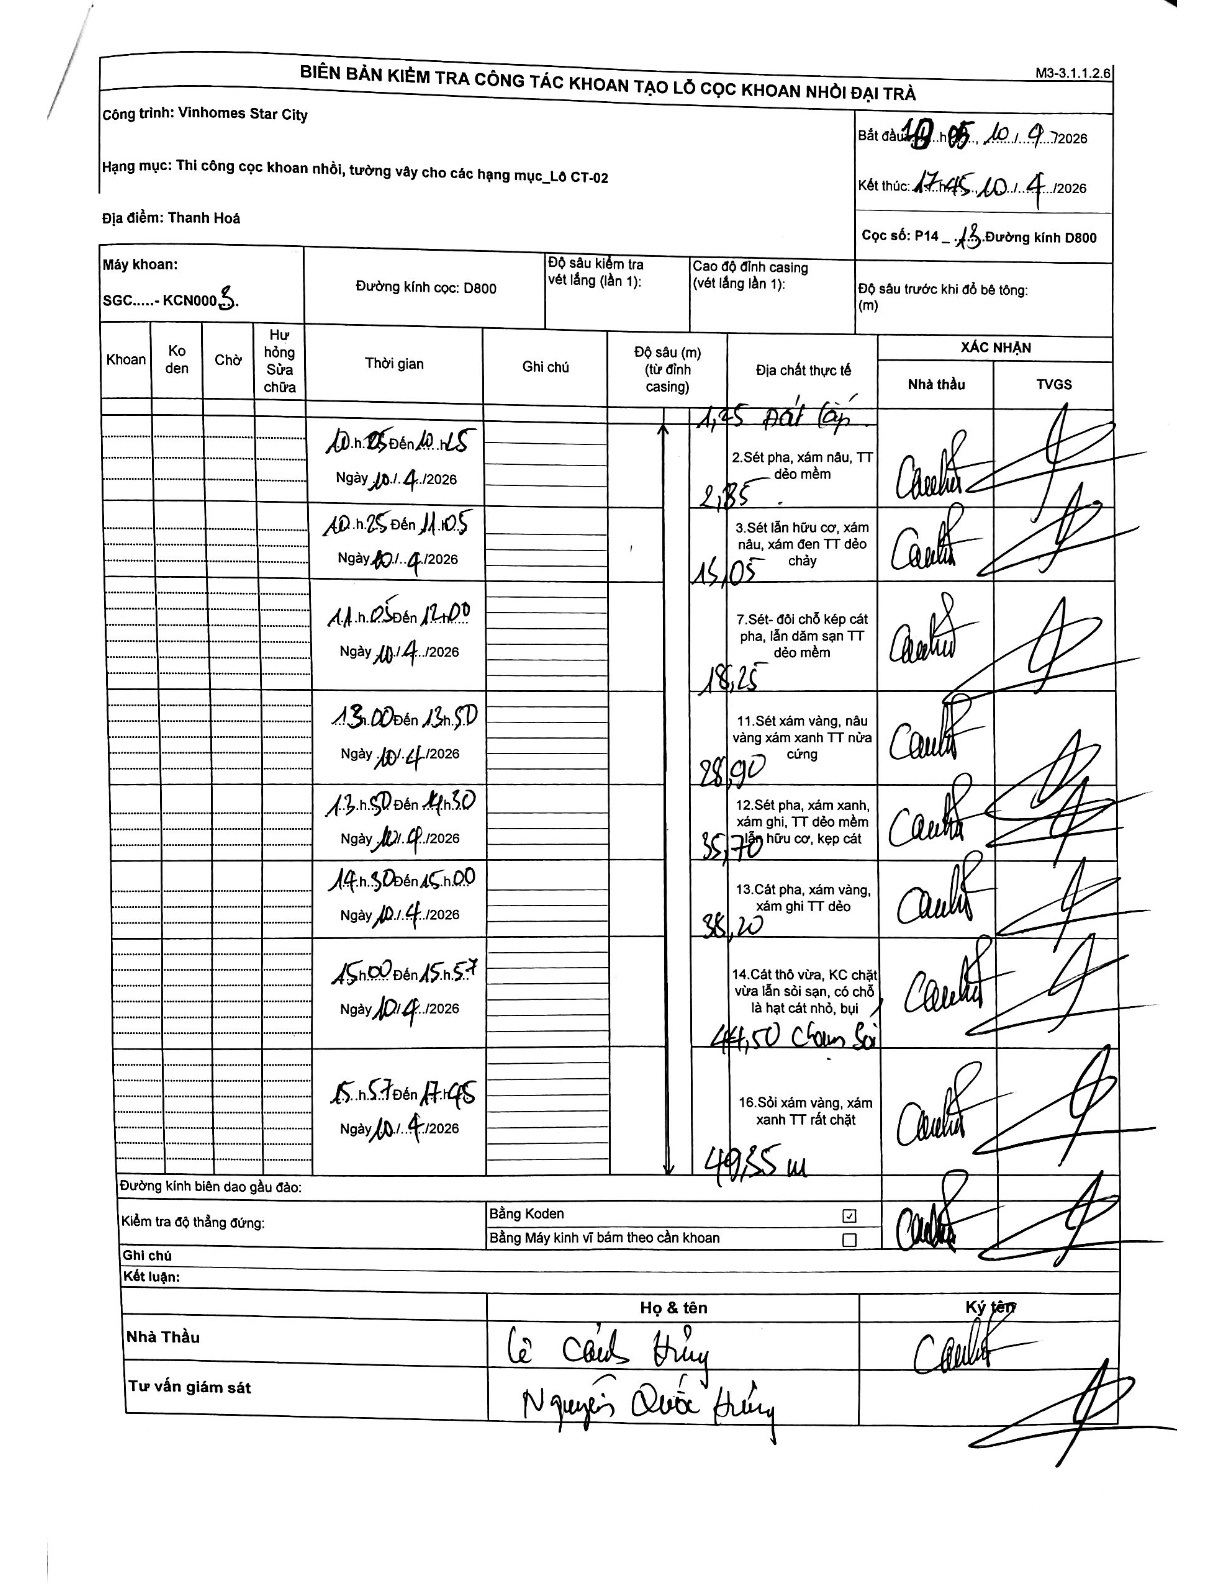 M3-3.1.1.2.6
BIÊN BẢN KIỂM TRA CÔNG TÁC KHOAN TẠO LỖ CỌC KHOAN NHỒI ĐẠI TRÀ
Công trình: Vinhomes Star City
Bắt đầu: 10.h 05, 10/4/2026
Hạng mục: Thi công cọc khoan nhồi, tường vây cho các hạng mục_Lô CT-02
Kết thúc: 17h45, 10/4/2026
Địa điểm: Thanh Hoá
Cọc số: P14_ 13 Đường kính D800
Máy khoan:
SGC.....- KCN0003.
Đường kính cọc: D800
Độ sâu kiểm tra
vét lắng (lần 1):
Cao độ đỉnh casing
(vét lắng lần 1):
Độ sâu trước khi đổ bê tông:
(m)
Khoan
Ko
den
Chờ
Hư
hỏng
Sửa
chữa
Thời gian
Ghi chú
Độ sâu (m)
(từ đỉnh
casing)
Địa chất thực tế
XÁC NHẬN
Nhà thầu
TVGS
1,25 Đất lấp
10.h.05 Đến 10.h25
Ngày 10/.4./2026
2.Sét pha, xám nâu, TT
dẻo mềm
2,85
10.h.25 Đến 11.h05
Ngày 10/.4./2026
3.Sét lẫn hữu cơ, xám
nâu, xám đen TT dẻo
chảy
15,05
11.h.05 Đến 12h00
Ngày 10/.4./2026
7.Sét- đôi chỗ kép cát
pha, lẫn dăm sạn TT
dẻo mềm
18,25
13h00 Đến 13h.50
Ngày 10/.4./2026
11.Sét xám vàng, nâu
vàng xám xanh TT nửa
cứng
28,90
13.h.50 Đến 14h30
Ngày 10/.4./2026
12.Sét pha, xám xanh,
xám ghi, TT dẻo mềm
lẫn hữu cơ, kẹp cát
35,70
14.h.30 Đến 15h00
Ngày 10/.4./2026
13.Cát pha, xám vàng,
xám ghi TT dẻo
38,20
15h00 Đến 15.h.57
Ngày 10/.4./2026
14.Cát thô vừa, KC chặt
vừa lẫn sỏi sạn, có chỗ
là hạt cát nhỏ, bụi
44,50 Chạm Sỏi
15.h.57 Đến 17.h45
Ngày 10/.4./2026
16.Sỏi xám vàng, xám
xanh TT rất chặt
49,35 m
Đường kính biên dao gầu đào:
Kiểm tra độ thẳng đứng:
Bằng Koden ☑
Bằng Máy kinh vĩ bám theo cần khoan ☐
Ghi chú
Kết luận:
Họ & tên
Ký tên
Nhà Thầu
Lê Cảnh Hưng
Tư vấn giám sát
Nguyễn Quốc Hưng